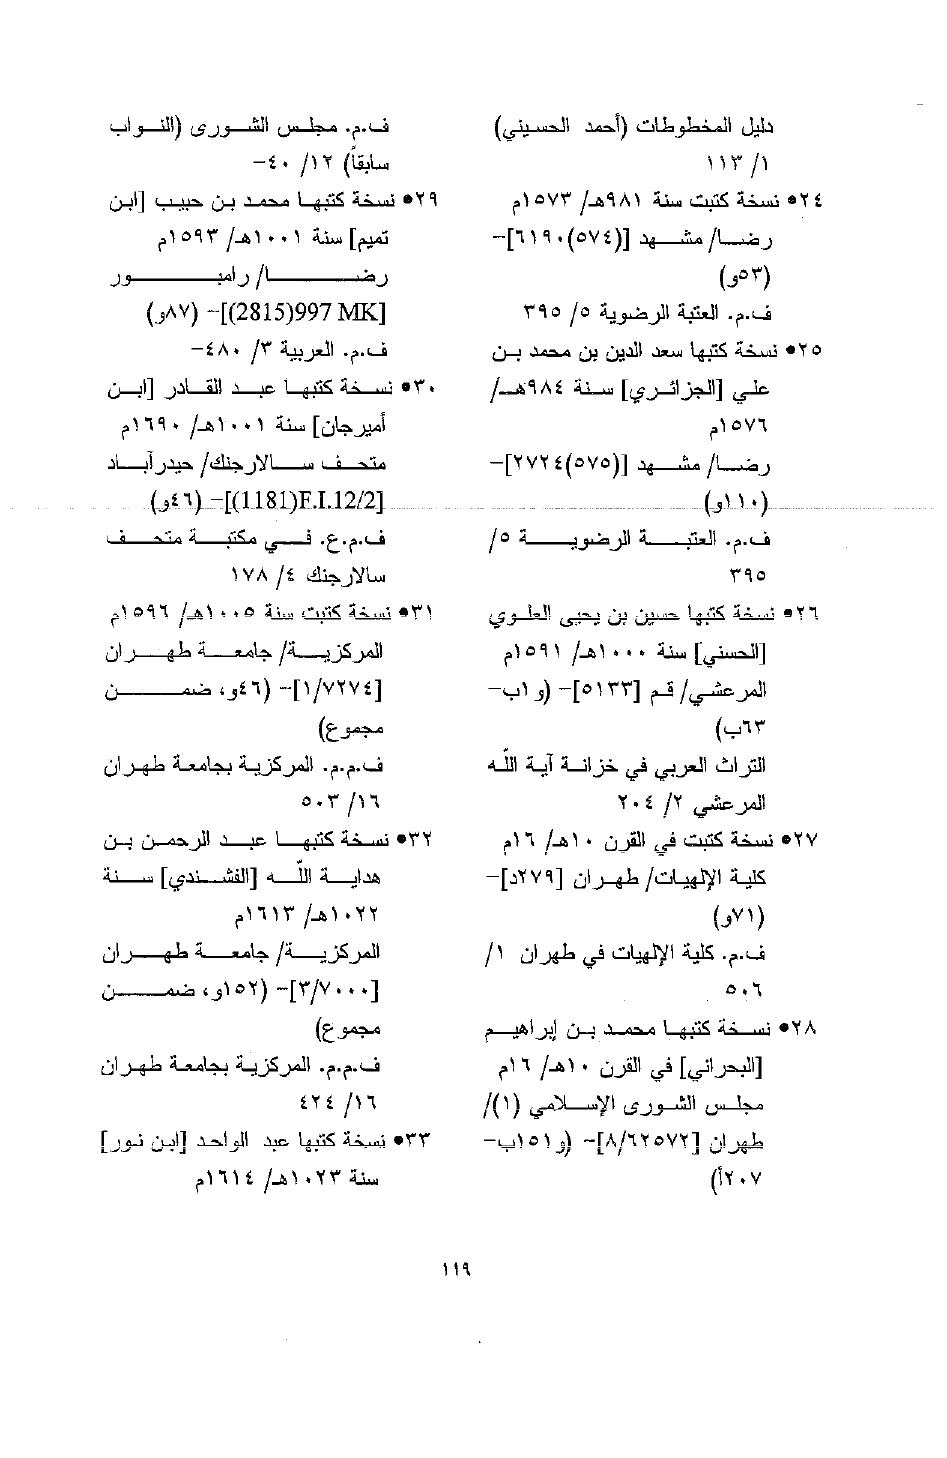 دليل المخطوطات (أحمد الحسيني)
١/ ١١٣
٢٤• نسخة كتبت سنة ٩٨١هـ/ ١٥٧٣م
رضا/ مشهد [(٥٧٤)٦١٩٠]-
(٥٣و)
ف.م. العتبة الرضوية ٥/ ٣٩٥
٢٥• نسخة كتبها سعد الدين بن محمد بن
علي [الجزائري] سنة ٩٨٤هـ/
١٥٧٦م
رضا/ مشهد [(٥٧٥)٢٧٢٤]-
(١١٠و)
ف.م. العتبة الرضوية ٥/
٣٩٥
٢٦• نسخة كتبها حسين بن يحيى العلوي
[الحسني] سنة ١٠٠٠هـ/ ١٥٩١م
المرعشي/ قم [٥١٣٣]- (و١ب-
٦٣ب)
التراث العربي في خزانة آية الله
المرعشي ٢/ ٢٠٤
٢٧• نسخة كتبت في القرن ١٠هـ/ ١٦م
كلية الإلهيات/ طهران [٢٧٩د]-
(٧١و)
ف.م. كلية الإلهيات في طهران ١/
٥٠٦
٢٨• نسخة كتبها محمد بن إبراهيم
[البحراني] في القرن ١٠هـ/ ١٦م
مجلس الشورى الإسلامي (١)/
طهران [٨/٦٢٥٧٢]- (و١٥١ب-
٢٠٧أ)
ف.م. مجلس الشورى (النواب
سابقاً) ١٢/ ٤٠-
٢٩• نسخة كتبها محمد بن حبيب [ابن
تميم] سنة ١٠٠١هـ/ ١٥٩٣م
رضا/ رامبور
[(2815)997 MK]- (٨٧و)
ف.م. العربية ٣/ ٤٨٠-
٣٠• نسخة كتبها عبد القادر [ابن
أميرجان] سنة ١٠٠١هـ/ ١٦٩٠م
متحف سالارجنك/ حيدرآباد
[(1181)F.I.12/2]- (٤٦و)
ف.م.ع. في مكتبة متحف
سالارجنك ٤/ ١٧٨
٣١• نسخة كتبت سنة ١٠٠٥هـ/ ١٥٩٦م
المركزية/ جامعة طهران
[١/٧٢٧٤]- (٤٦و، ضمن
مجموع)
ف.م.م. المركزية بجامعة طهران
١٦/ ٥٠٣
٣٢• نسخة كتبها عبد الرحمن بن
هداية الله [الفشندي] سنة
١٠٢٢هـ/ ١٦١٣م
المركزية/ جامعة طهران
[٣/٧٠٠٠]- (١٥٢و، ضمن
مجموع)
ف.م.م. المركزية بجامعة طهران
١٦/ ٤٢٤
٣٣• نسخة كتبها عبد الواحد [ابن نور]
سنة ١٠٢٣هـ/ ١٦١٤م
١١٩